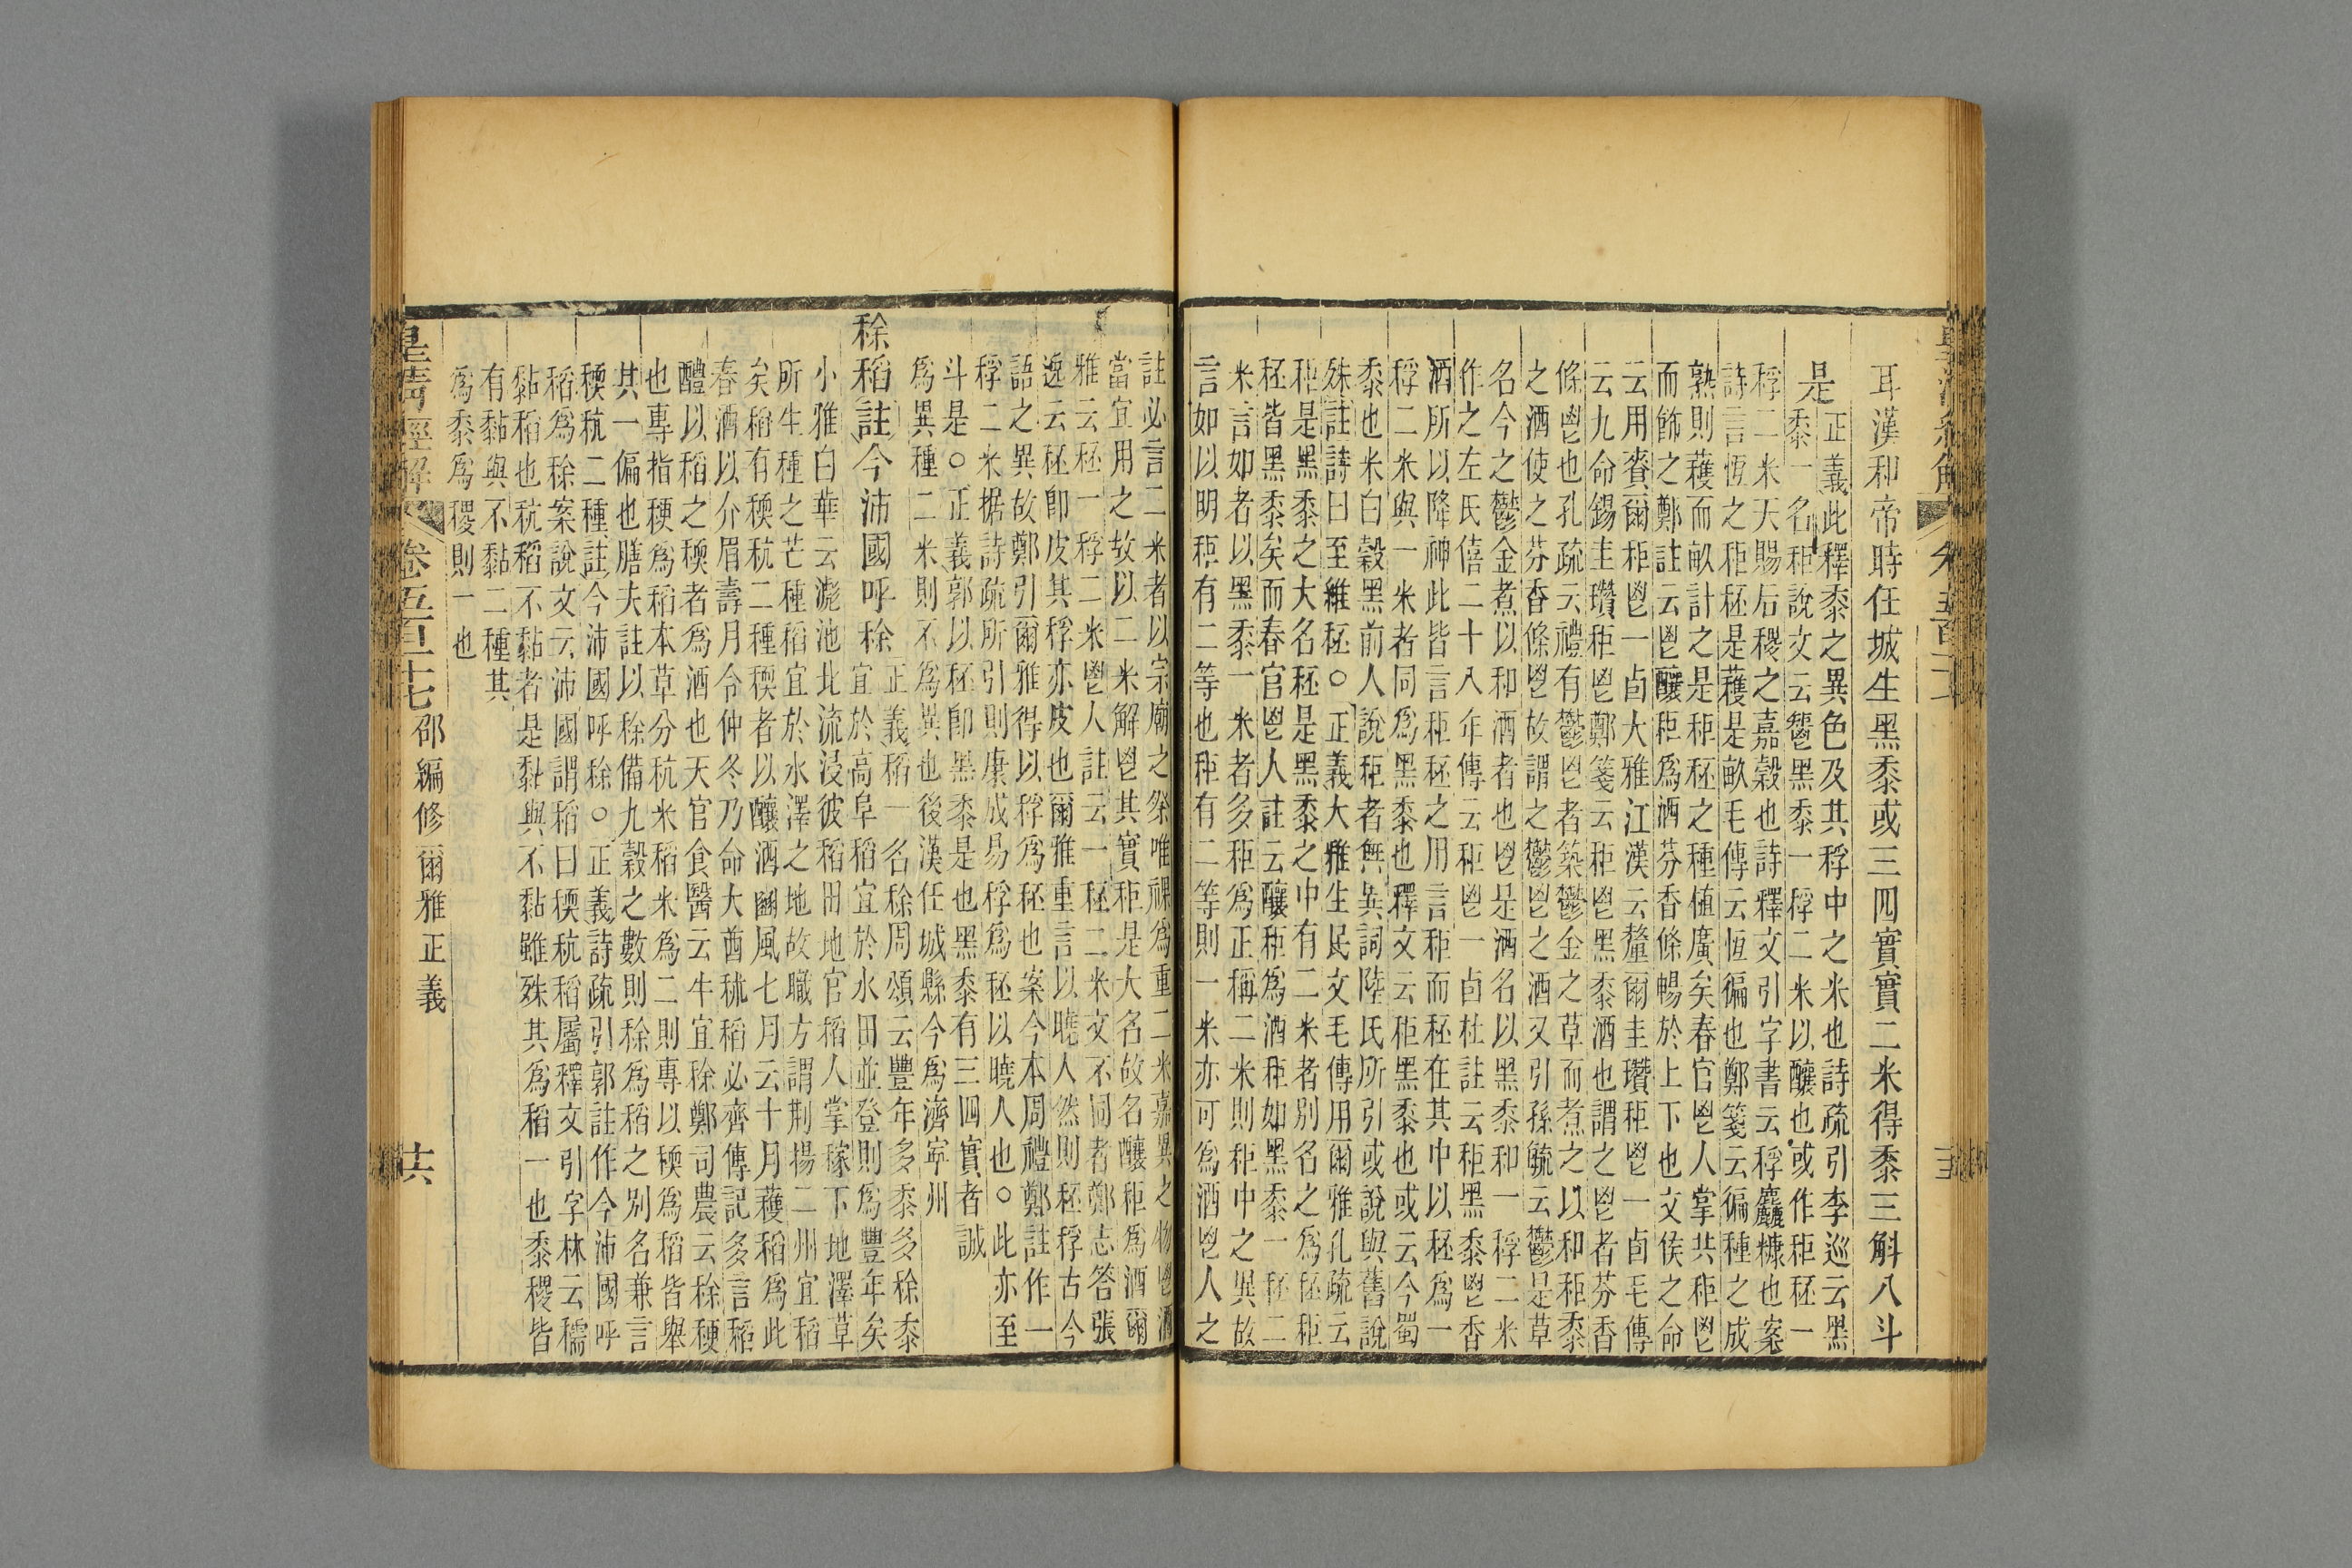 耳漢和帝時任城生黑黍或三四實實二米得黍三斛八斗
是
正義此釋黍之異色及其稃中之米也詩疏引李巡云黑
黍一名秬說文云鬯黑黍一稃二米以釀也或作秬秠一
稃二米天賜后稷之嘉穀也詩釋文引字書云稃麤糠也案
詩言恆之秬秠是穫是畝毛傳云恆徧也鄭箋云徧種之成
熟則穫而畝計之是秬秠之種植廣矣春官鬯人掌共秬鬯
而飾之鄭註云鬯釀秬爲酒芬香條暢於上下也文侯之命
云用賚爾秬鬯一卣大雅江漢云釐爾圭瓚秬鬯一卣毛傳
云九命錫圭瓚秬鬯鄭箋云秬鬯黑黍酒也謂之鬯者芬香
條鬯也孔疏云禮有鬱鬯者築鬱金之草而煮之以和秬黍
之酒使之芬香條鬯故謂之鬱鬯之酒又引孫毓云鬱是草
名今之鬱金煮以和酒者也鬯是酒名以黑黍和一稃二米
作之左氏僖二十八年傳云秬鬯一卣杜註云秬黑黍鬯香
酒所以降神此皆言秬秠之用言秬而秠在其中以秠爲一
稃二米與一米者同爲黑黍也釋文云秬黑黍也或云今蜀
黍也米白穀黑前人說秬者無異詞陸氏所引或說與舊說
殊註詩曰至維秠○正義大雅生民文毛傳用爾雅孔疏云
秬是黑黍之大名秠是黑黍之中有二米者別名之爲秠秬
秠皆黑黍矣而春官鬯人註云釀秬爲酒秬如黑黍一秠二
米言如者以黑黍一米者多秬爲正稱二米則秬中之異故
言如以明秬有二等也秬有二等則一米亦可爲酒鬯人之
註必言二米者以宗廟之祭唯祼爲重二米嘉異之物鬯酒
當宜用之故以二米解鬯其實秬是大名故名釀秬爲酒爾
雅云秠一稃二米鬯人註云一秠二米文不同者鄭志答張
逸云秠卽皮其稃亦皮也爾雅重言以曉人然則秠稃古今
語之異故鄭引爾雅得以稃爲秠也案今本周禮鄭註作一
稃二米據詩疏所引則康成易稃爲秠以曉人也○此亦至
斗是○正義郭以秠卽黑黍是也黑黍有三四實者誠
爲異種二米則不爲異也後漢任城縣今爲濟寧州
稌稻註今沛國呼稌
正義稻一名稌周頌云豐年多黍多稌黍
宜於高阜稻宜於水田並登則爲豐年矣
小雅白華云滮池北流浸彼稻田地官稻人掌稼下地澤草
所生種之芒種稻宜於水澤之地故職方謂荆揚二州宜稻
矣稻有稬秔二種稬者以釀酒豳風七月云十月穫稻爲此
春酒以介眉壽月令仲冬乃命大酋秫稻必齊傳記多言稻
醴以稻之稬者爲酒也天官食醫云牛宜稌鄭司農云稌稉
也專指稉爲稻本草分秔米稻米爲二則專以稬爲稻皆舉
其一偏也膳夫註以稌備九穀之數則稌爲稻之別名兼言
稬秔二種註今沛國呼稌○正義詩疏引郭註作今沛國呼
稻爲稌案說文云沛國謂稻曰稬秔稻屬釋文引字林云穤
黏稻也秔稻不黏者是黏與不黏雖殊其爲稻一也黍稷皆
有黏與不黏二種其
爲黍爲稷則一也
皇清經解 卷五百十七 邵編修爾雅正義 十六